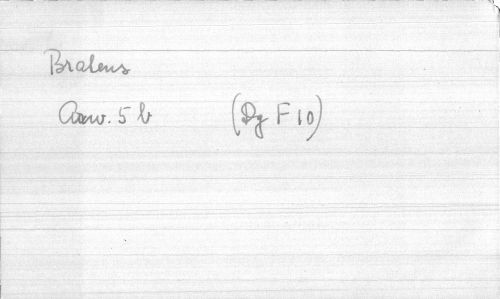 Bralens
Anv. 5 b (Dg F 10)